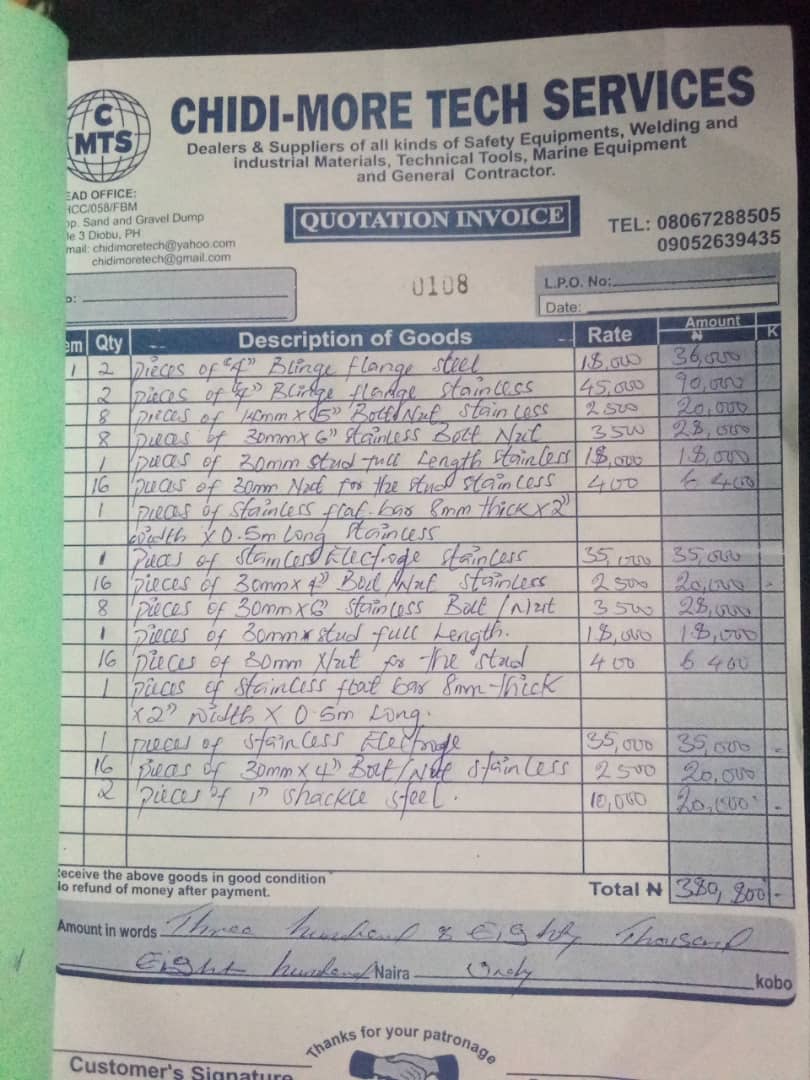 C
MTS
CHIDI-MORE TECH SERVICES
Dealers & Suppliers of all kinds of Safety Equipments, Welding and
industrial Materials, Technical Tools, Marine Equipment
and General Contractor.
EAD OFFICE:
HCC/058/FBM
pp. Sand and Gravel Dump
le 3 Diobu, PH
mail: chidimoretech@yahoo.com
chidimoretech@gmail.com
QUOTATION INVOICE
TEL: 08067288505
09052639435
0108
L.P.O. No:
Date:
em Qty Description of Goods Rate Amount ₦ K
1 2 pieces of "4" Blinge flange steel 18,000 36,000
2 pieces of "4" Blinge flange stainless 45,000 90,000
8 pieces of 14mm X 5" Bolt/Nut stainless 2500 20,000
8 pieces of 30mm X 6" stainless Bolt Nut 3500 28,000
1 pieces of 30mm stud full Length stainless 18,000 18,000
16 pieces of 30mm Nut for the stud stainless 400 6 400
1 pieces of stainless flat bar 8mm thick X 2"
width X 0.5m Long stainless
1 pieces of stainless Electroge stainless 35,000 35,000
16 pieces of 30mm x 4" Bout/Nut stainless 2500 20,000 -
8 pieces of 30mm X 6" stainless Bolt/Nut 3500 28,000
1 pieces of 30mm stud full Length. 18,000 18,000
16 pieces of 30mm Nut for the stud 400 6 400
1 pieces of stainless flat bar 8mm thick
X 2" width X 0.5m Long.
1 pieces of stainless Electroge 35,000 35,000 -
16 pieces of 30mm X 4" Bolt/Nut stainless 2500 20,000
2 pieces of 1" shackle steel. 10,000 20,000 -
Receive the above goods in good condition
No refund of money after payment.
Total ₦ 380,800 -
Amount in words Three hundred & Eighty Thousand
Eight hundred Naira Only kobo
Thanks for your patronage
Customer's Signature